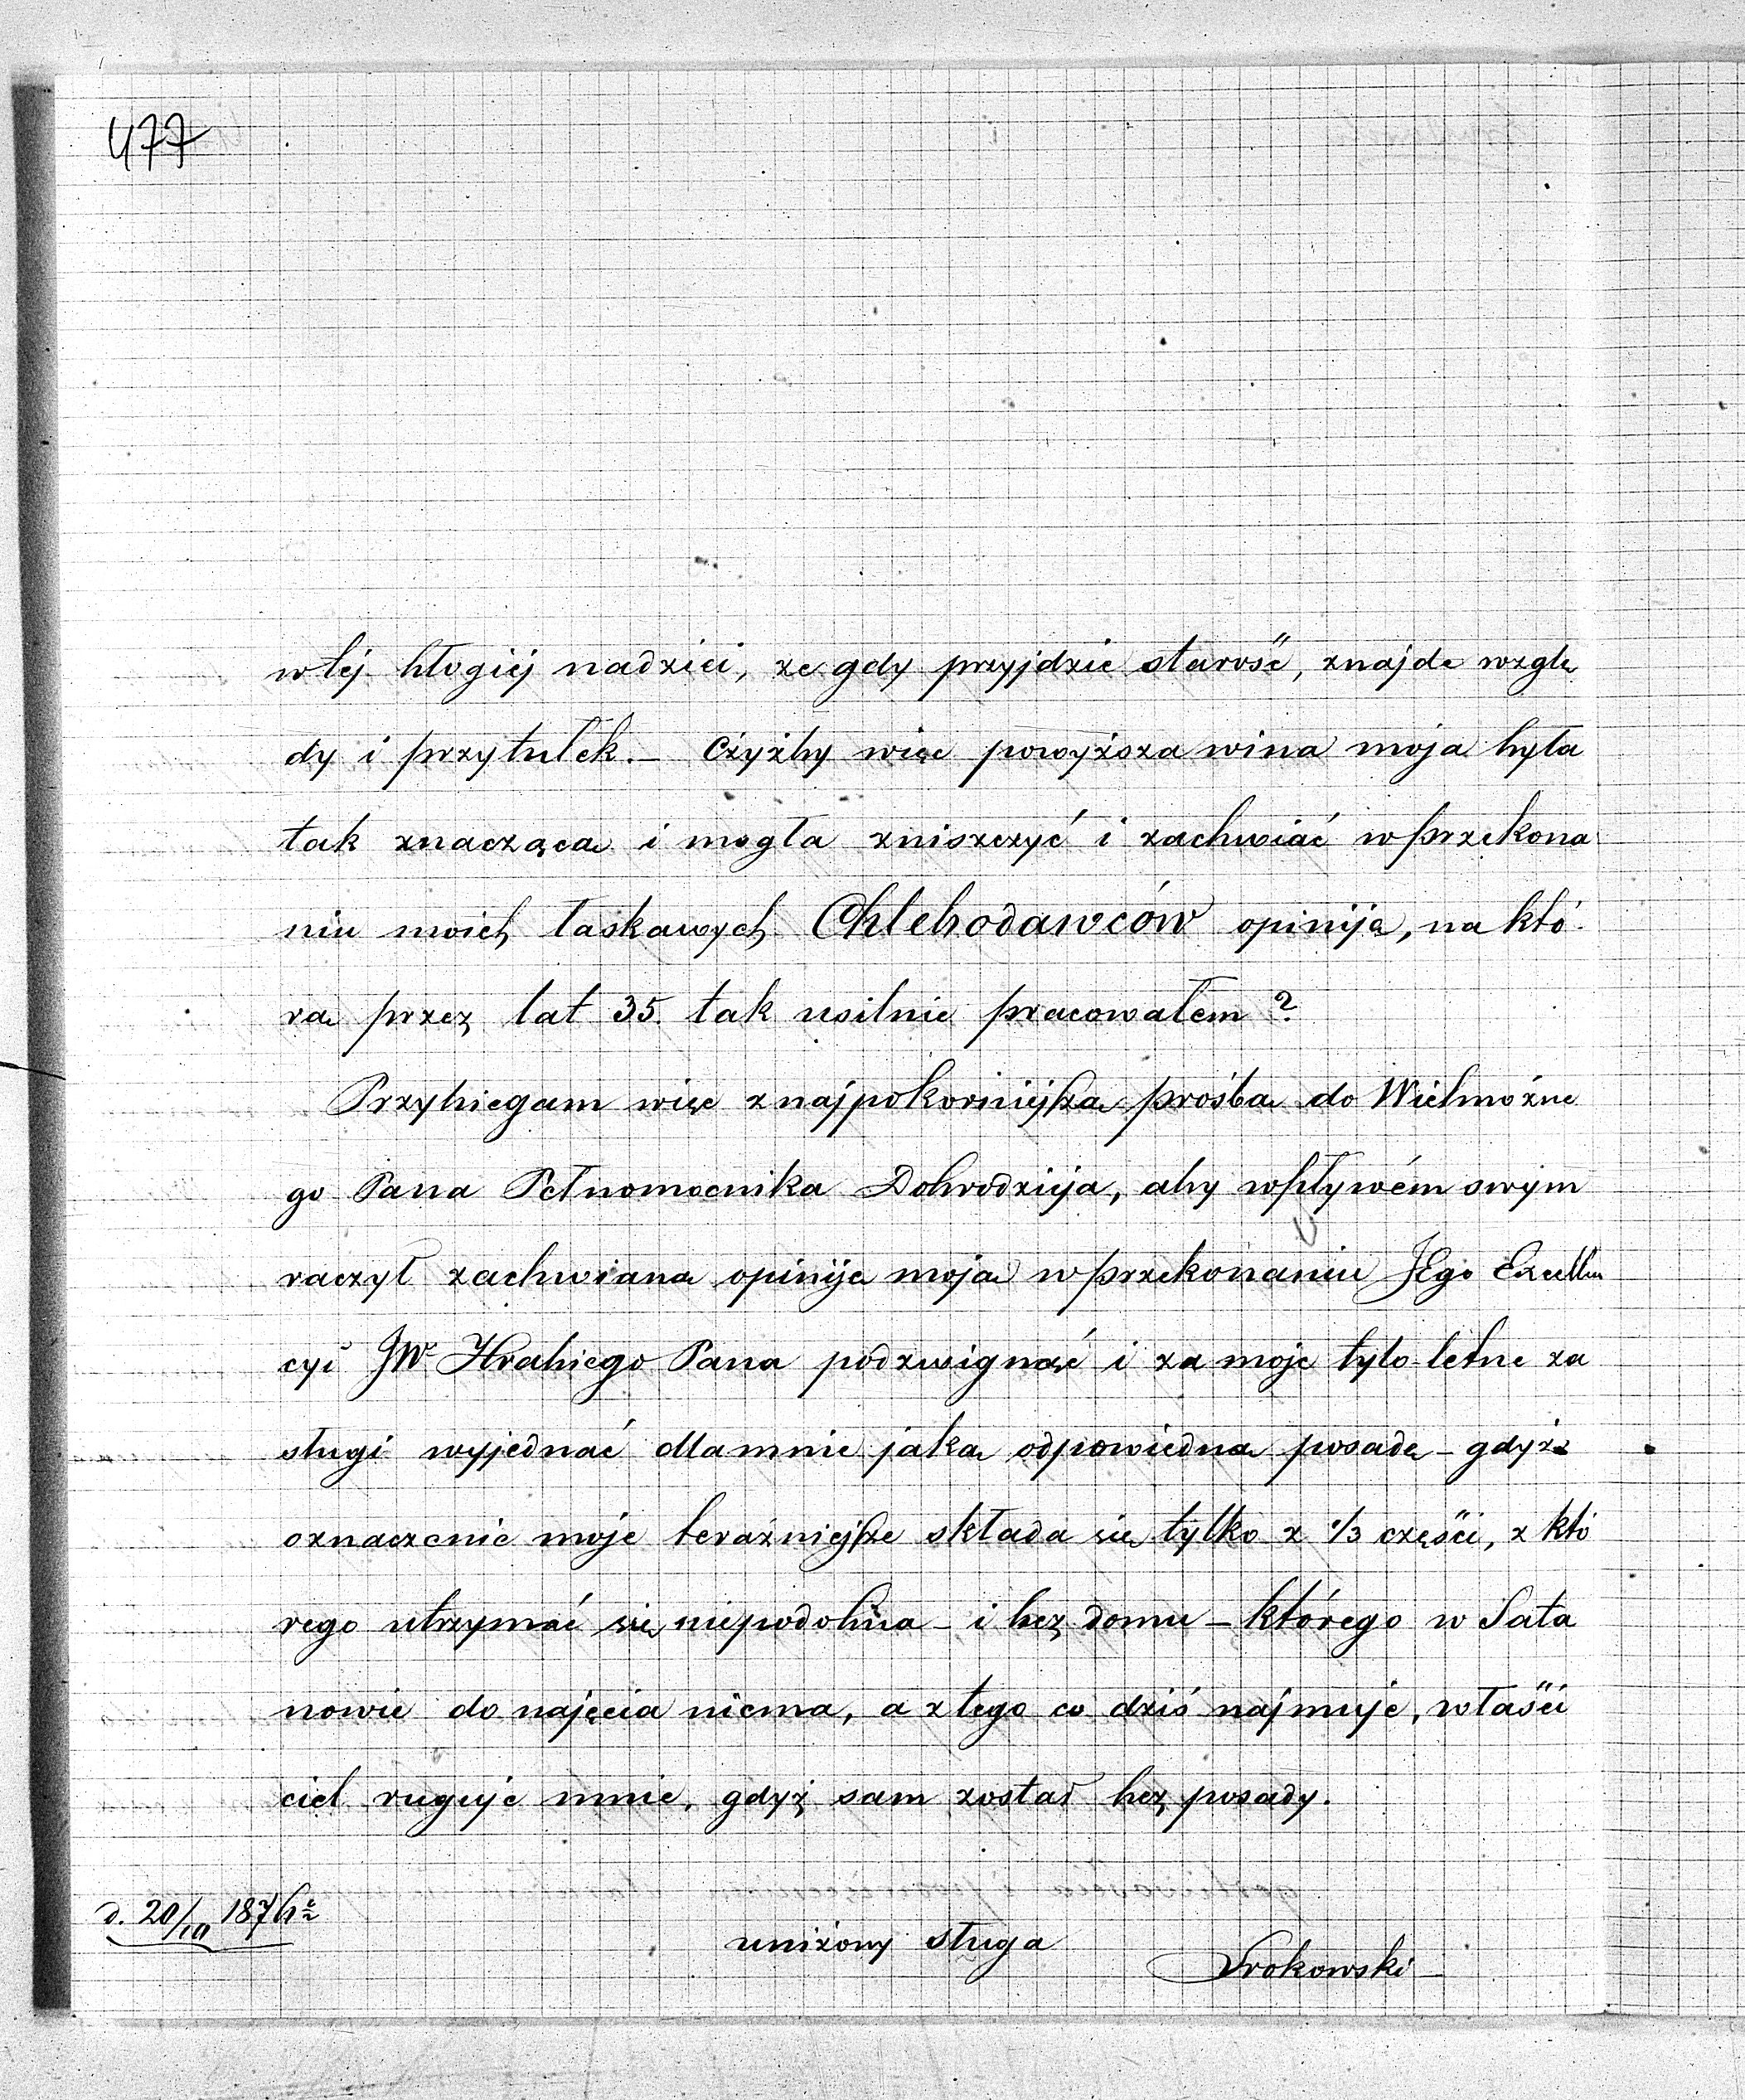 477
w tej błogiej nadziei, że gdy przyjdzie starość, znajdę wzglę
dy i przytułek. – Czyżby więc powyższa wina moja była
tak znacząca i mogła zniszczyć i zachwiać w przekona
niu moich łaskawych Chlebodawców opiniję, na któ
rą przez lat 35. tak usilnie pracowałem?
Przybiegam więc z najpokorniejszą prośbą do Wielmożne
go Pana Pełnomocnika Dobrodzieja, aby wpływem swym
raczył zachwianą opiniję moją w przekonaniu JEgo Excellen
cyi JW Hrabiego Pana podzwignąć i za moje tylo-letne za
sługi wyjednać dla mnie jaką odpowiedną posadę – gdyż
oznaczenie moje teraźniejsze składa się tylko z 1/3 części, z któ
rego utrzymać się niepodobna – i bez domu – którego w Sata
nowie do najęcia niema, a z tego co dziś najmuję, właści
ciel ruguje mnie, gdyż sam został bez posady.
d. 20/ 1876
uniżony sługa